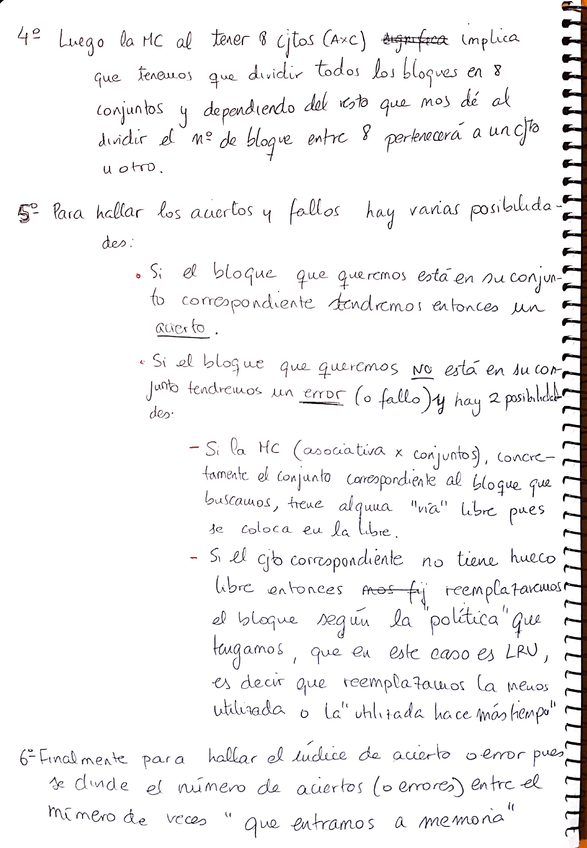 4º Luego la MC al tener 8 cjtos (AxC) significa implica
que tenemos que dividir todos los bloques en 8
conjuntos y dependiendo del resto que nos dé al
dividir el nº de bloque entre 8 pertenecerá a un cjto
u otro.
5º Para hallar los aciertos y fallos hay varias posibilida-
des:
• Si el bloque que queremos está en su conjun-
to correspondiente tendremos entonces un
acierto.
• Si el bloque que queremos NO está en su con-
junto tendremos un error (o fallo) y hay 2 posibilida
des:
- Si la MC (asociativa x conjuntos), concre-
tamente el conjunto correspondiente al bloque que
buscamos, tiene alguna "vía" libre pues
se coloca en la libre.
- Si el cjto correspondiente no tiene hueco
libre entonces nos fij reemplazaremos
el bloque según la "política" que
tengamos, que en este caso es LRU,
es decir que reemplazamos la menos
utilizada o la "utilizada hace más tiempo"
6º- Finalmente para hallar el índice de acierto o error pues
se divide el número de aciertos (o errores) entre el
número de veces "que entramos a memoria"